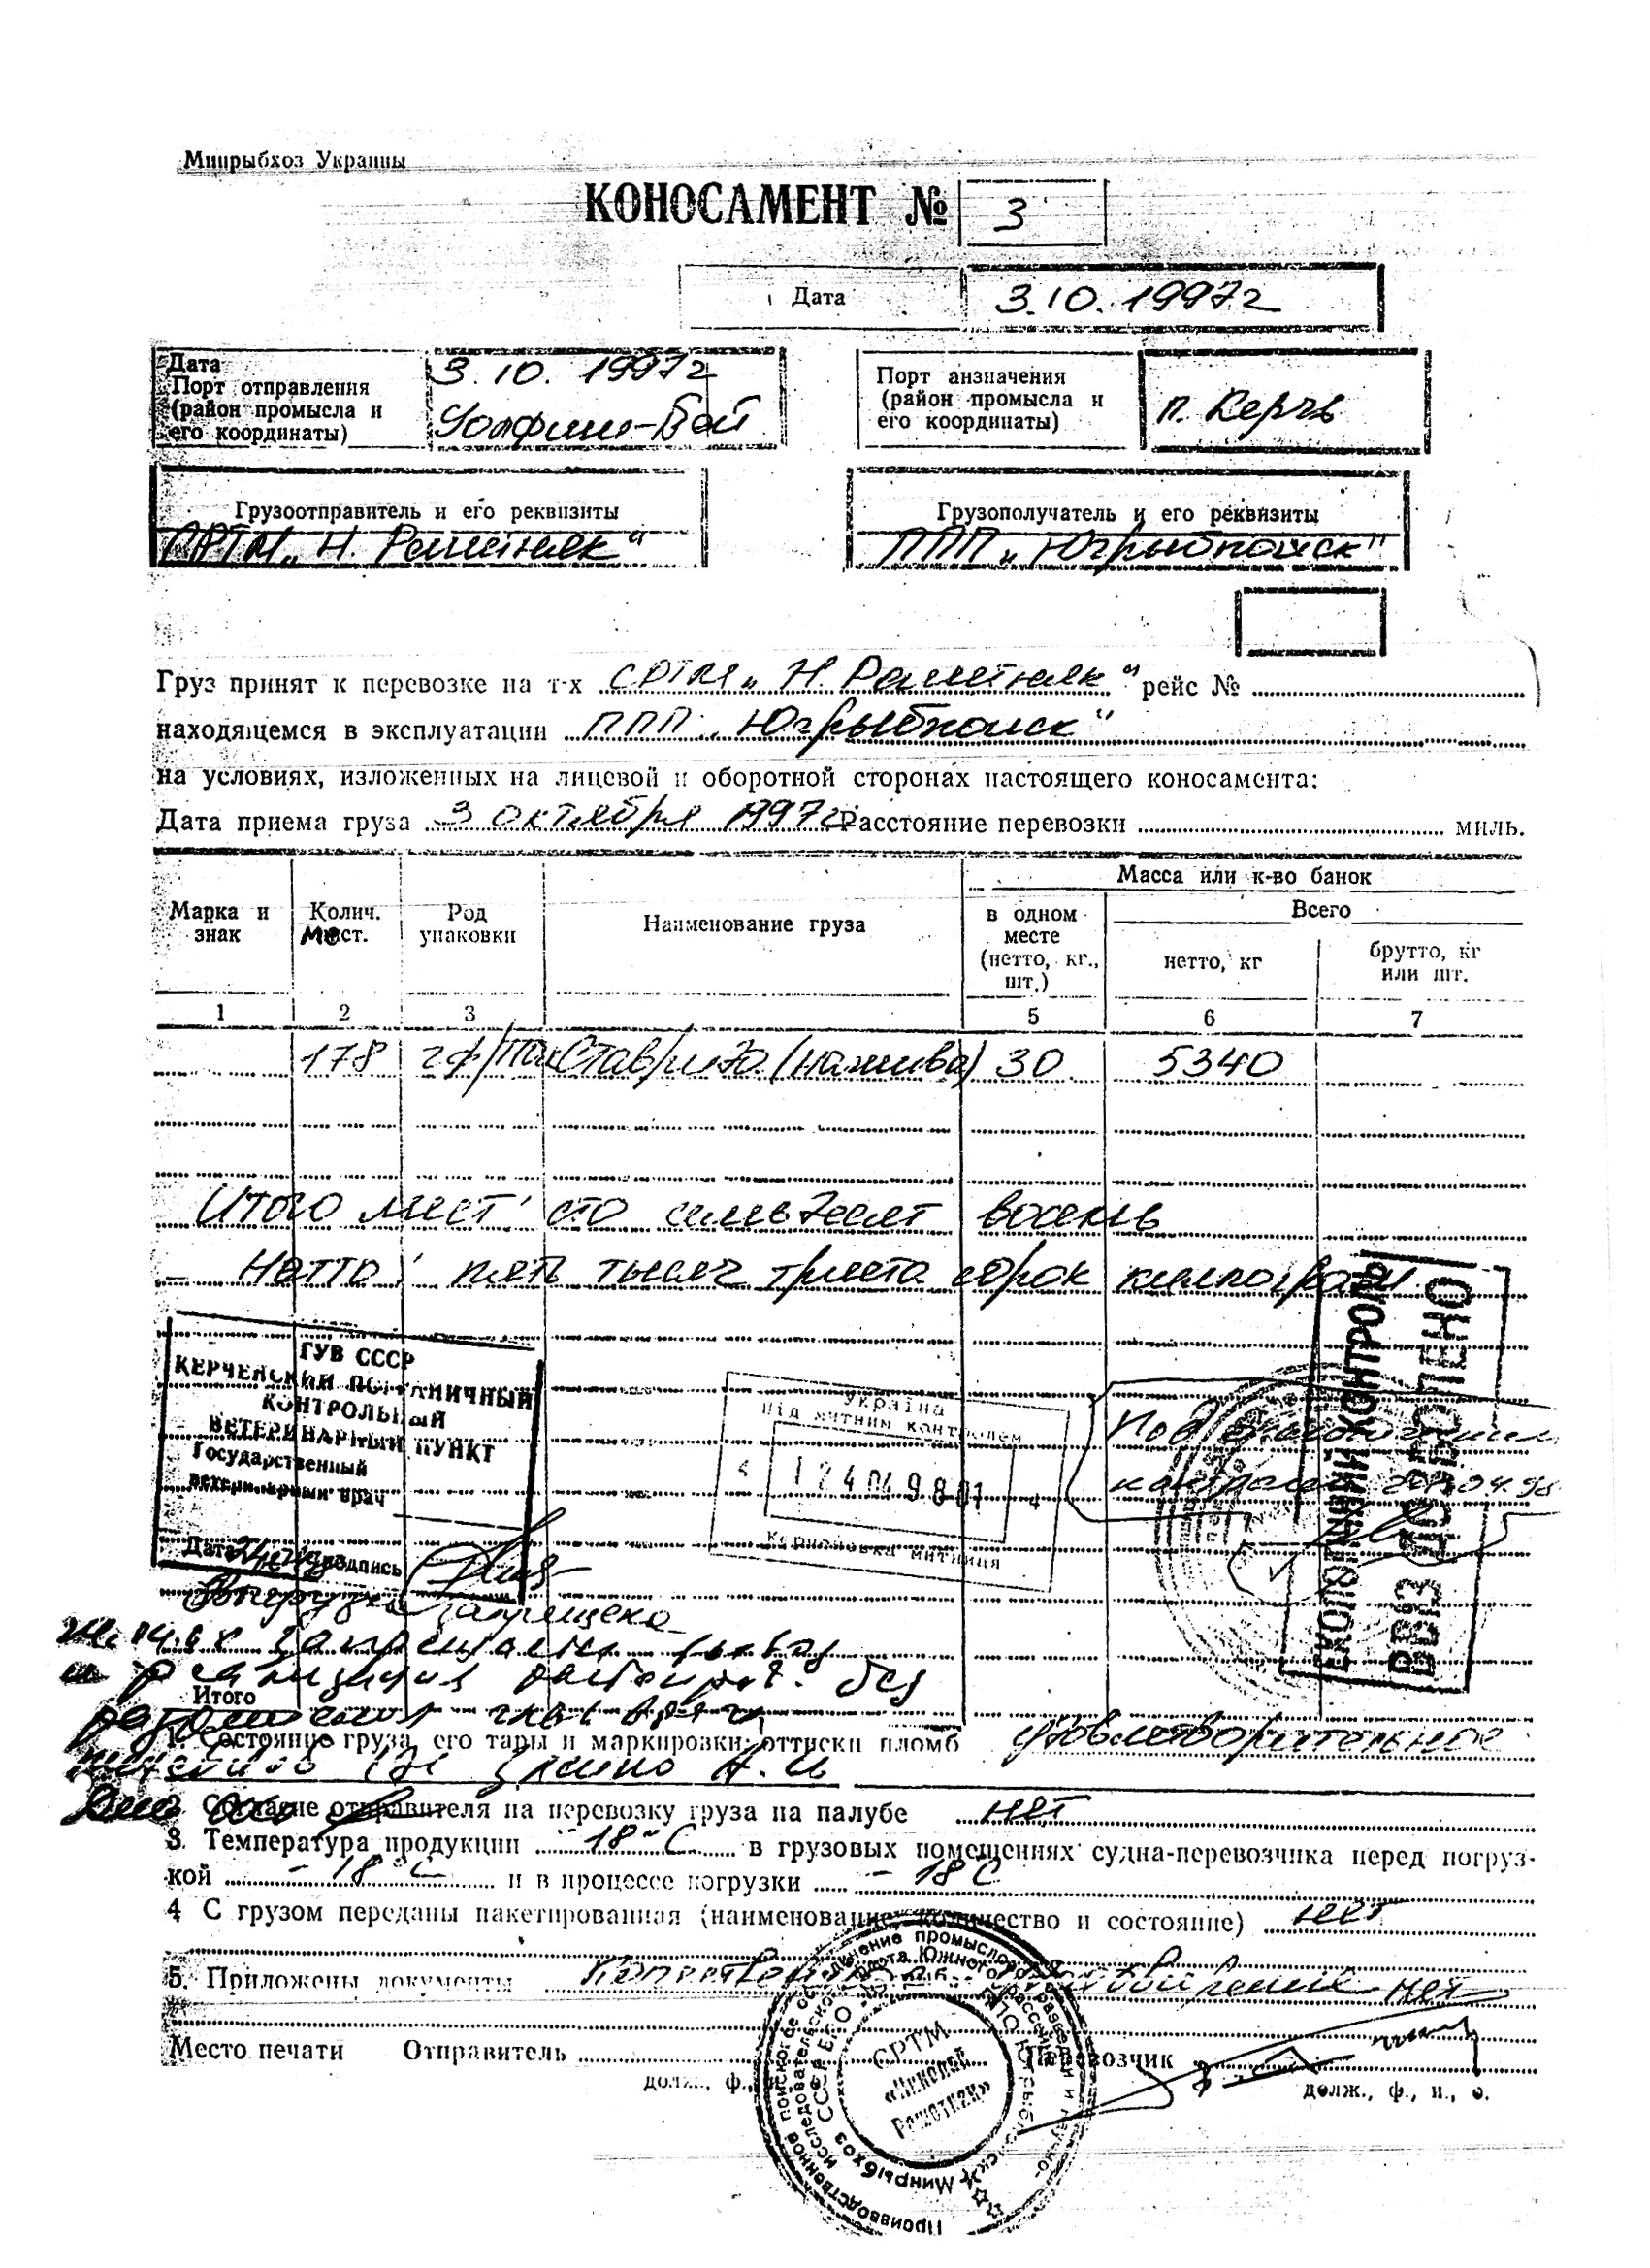 Минрыбхоз Украины
КОНОСАМЕНТ № 3
Дата 3.10.1997г
Дата 3.10.1997г
Порт отправления
(район промысла и
его координаты) Уолфиш-Бей
Порт анзначения
(район промысла и
его координаты) п. Керчь
Грузоотправитель и его реквизиты
СРТМ „Н. Решетняк“
Грузополучатель и его реквизиты
ППП „Югрыбпоиск“
Груз принят к перевозке на т-х СРТМ „Н. Решетняк“ рейс №
находящемся в эксплуатации ППП „Югрыбпоиск“
на условиях, изложенных на лицевой и оборотной сторонах настоящего коносамента:
Дата приема груза 3 октября 1997г Расстояние перевозки миль.
Марка и знак
Колич. мест.
Род упаковки
Наименование груза
Масса или к-во банок
в одном месте (нетто, кг., шт.)
Всего
нетто, кг
брутто, кг или шт.
1 2 3 5 6 7
178 (нажива) 30 5340
Итого мест: сто семьдесят восемь
Нетто: пять тысяч триста сорок килограмм
ГУВ СССР
КЕРЧЕНСКИЙ ПОГРАНИЧНЫЙ
КОНТРОЛЬНЫЙ
ВЕТЕРИНАРНЫЙ ПУНКТ
Государственный
ветеринарный врач
Дата подпись
Україна
Під митним контролем
Керченська митниця
Под экологическим
контролем
ЕКОЛОГІЧНИЙ КОНТРОЛЬ
ВВІЗ ДОЗВОЛЕНО
запрещена
без
Итого
1. Состояние груза, его тары и маркировки; оттиски пломб удовлетворительное
2. Согласие отправителя на перевозку груза на палубе нет
3. Температура продукции -18°C в грузовых помещениях судна-перевозчика перед погруз-
кой -18°C и в процессе погрузки -18 C
4 С грузом переданы пакетированная (наименование, количество и состояние) нет
5. Приложены документы нет
Место печати Отправитель Перевозчик
долж., ф., и., о.
долж., ф., и., о.
Производственное поисковое объединение промысловой разведки и научно-
исследовательского флота Южного бассейна
Минрыбхоз СССР
СРТМ
«Николай
Решетняк»